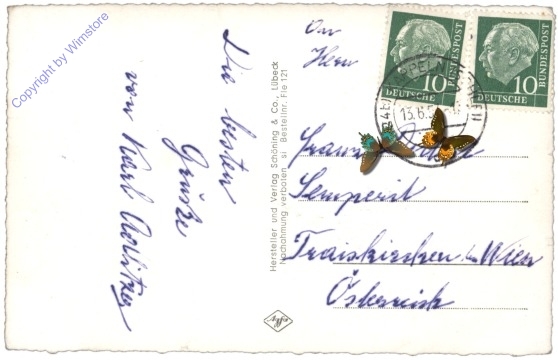 Copyright by Wimstore
Die besten
Grüße
von Karl
Hersteller und Verlag Schöning & Co., Lübeck
Nachahmung verboten si Bestellnr. Fle 121
Agfa
An
Herrn
Semperit
Traiskirchen bei Wien
Österreich
10
DEUTSCHE
BUNDESPOST
10
DEUTSCHE
BUNDESPOST